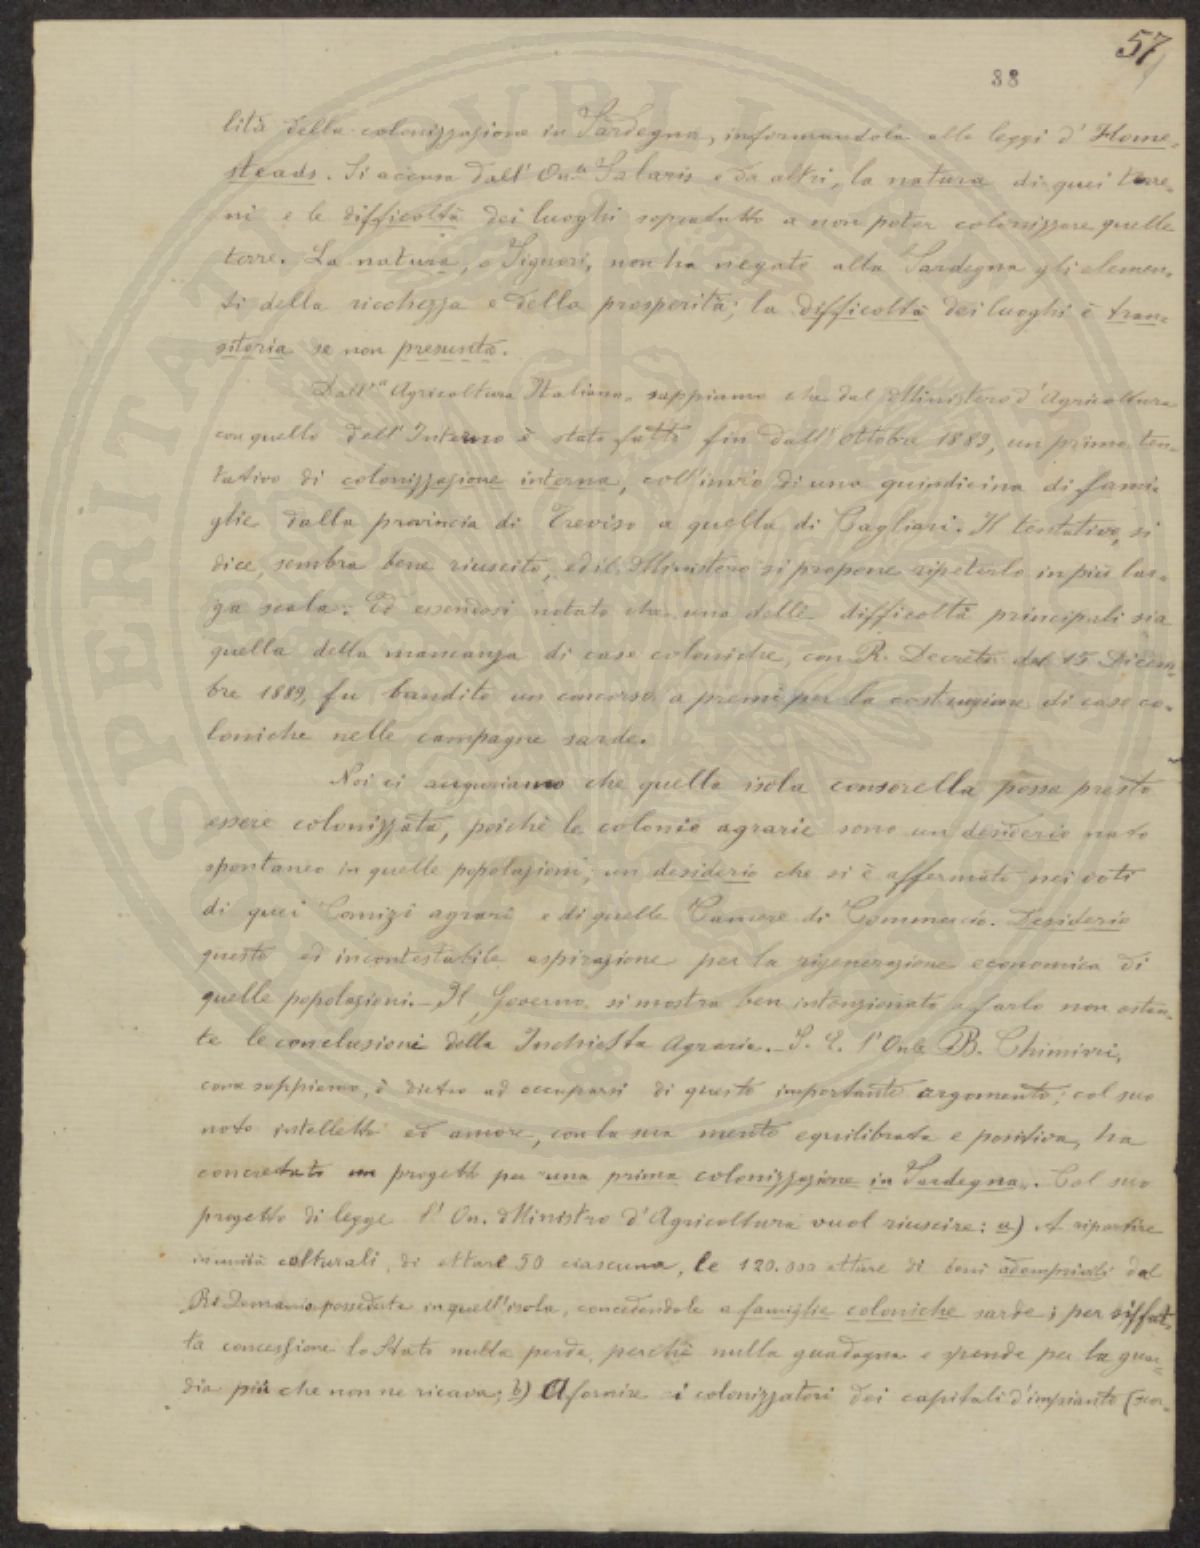 57
88
lità della colonizzazione in Sardegna, informandola alle leggi d'Home-
steads. Si accusa dall'On.le Salaris e da altri, la natura di quei terre-
ni e le difficoltà dei luoghi sopratutto a non poter colonizzare quelle
terre. La natura, o Signori, non ha negato alla Sardegna gli elemen-
ti della ricchezza e della prosperità; la difficoltà dei luoghi è tran-
sitoria se non presunta.
Dall'"Agricoltura Italiana" sappiamo che dal Ministero d'Agricoltura
con quello dell'Interno è stato fatto fin dall'ottobre 1889, un primo ten-
tativo di colonizzazione interna, coll'invio di una quindicina di fami-
glie dalla provincia di Treviso a quella di Cagliari. Il tentativo, si
dice, sembra bene riuscito, ed il Ministero si propone ripeterlo in più lar-
ga scala. Ed essendosi notato che una delle difficoltà principali sia
quella della mancanza di case coloniche, con R. Decreto del 15 Dicem-
bre 1889, fu bandito un concorso a premi per la costruzione di case co-
loniche nelle campagne sarde.
Noi ci auguriamo che quella isola consorella possa presto
essere colonizzata, poichè le colonie agrarie sono un desiderio nato
spontaneo in quelle popolazioni; un desiderio che si è affermato nei voti
di quei Comizî agrarî e di quelle Camere di Commercio. Desiderio
questo ed incontestabile aspirazione per la rigenerazione economica di
quelle popolazioni. - Il Governo si mostra ben intenzionato a farlo non ostan-
te le conclusioni della Inchiesta Agraria. - S. E. l'Onle B. Chimirri,
come sappiamo, è dietro ad occuparsi di questo importante argomento; col suo
noto intelletto ed amore, con la sua mente equilibrata e positiva, ha
concretato un progetto per "una prima colonizzazione in Sardegna". Col suo
progetto di legge l'On. Ministro d'Agricoltura vuol riuscire: a) A ripartire
in unità colturali, di ettare 50 ciascuna, le 120.000 ettare di beni ademprivili dal
R.o Demanio possedute in quell'isola, concedendole a famiglie coloniche sarde; per siffat-
ta concessione lo Stato nulla perde, perchè nulla guadagna e spende per la guar-
dia più che non ne ricava; b) A fornire i colonizzatori dei capitali d'impianto (scor-